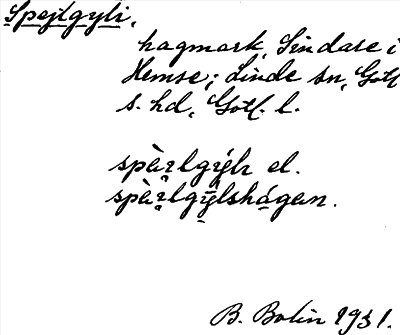 Spejlgylr,
hagmark, Sindare i
Hemse; Linde sn, Gotl
s. hd, Gotl. l.
spàr̥lgýlr el.
spàr̥lgýlshágan.
B. Bolin 1931.